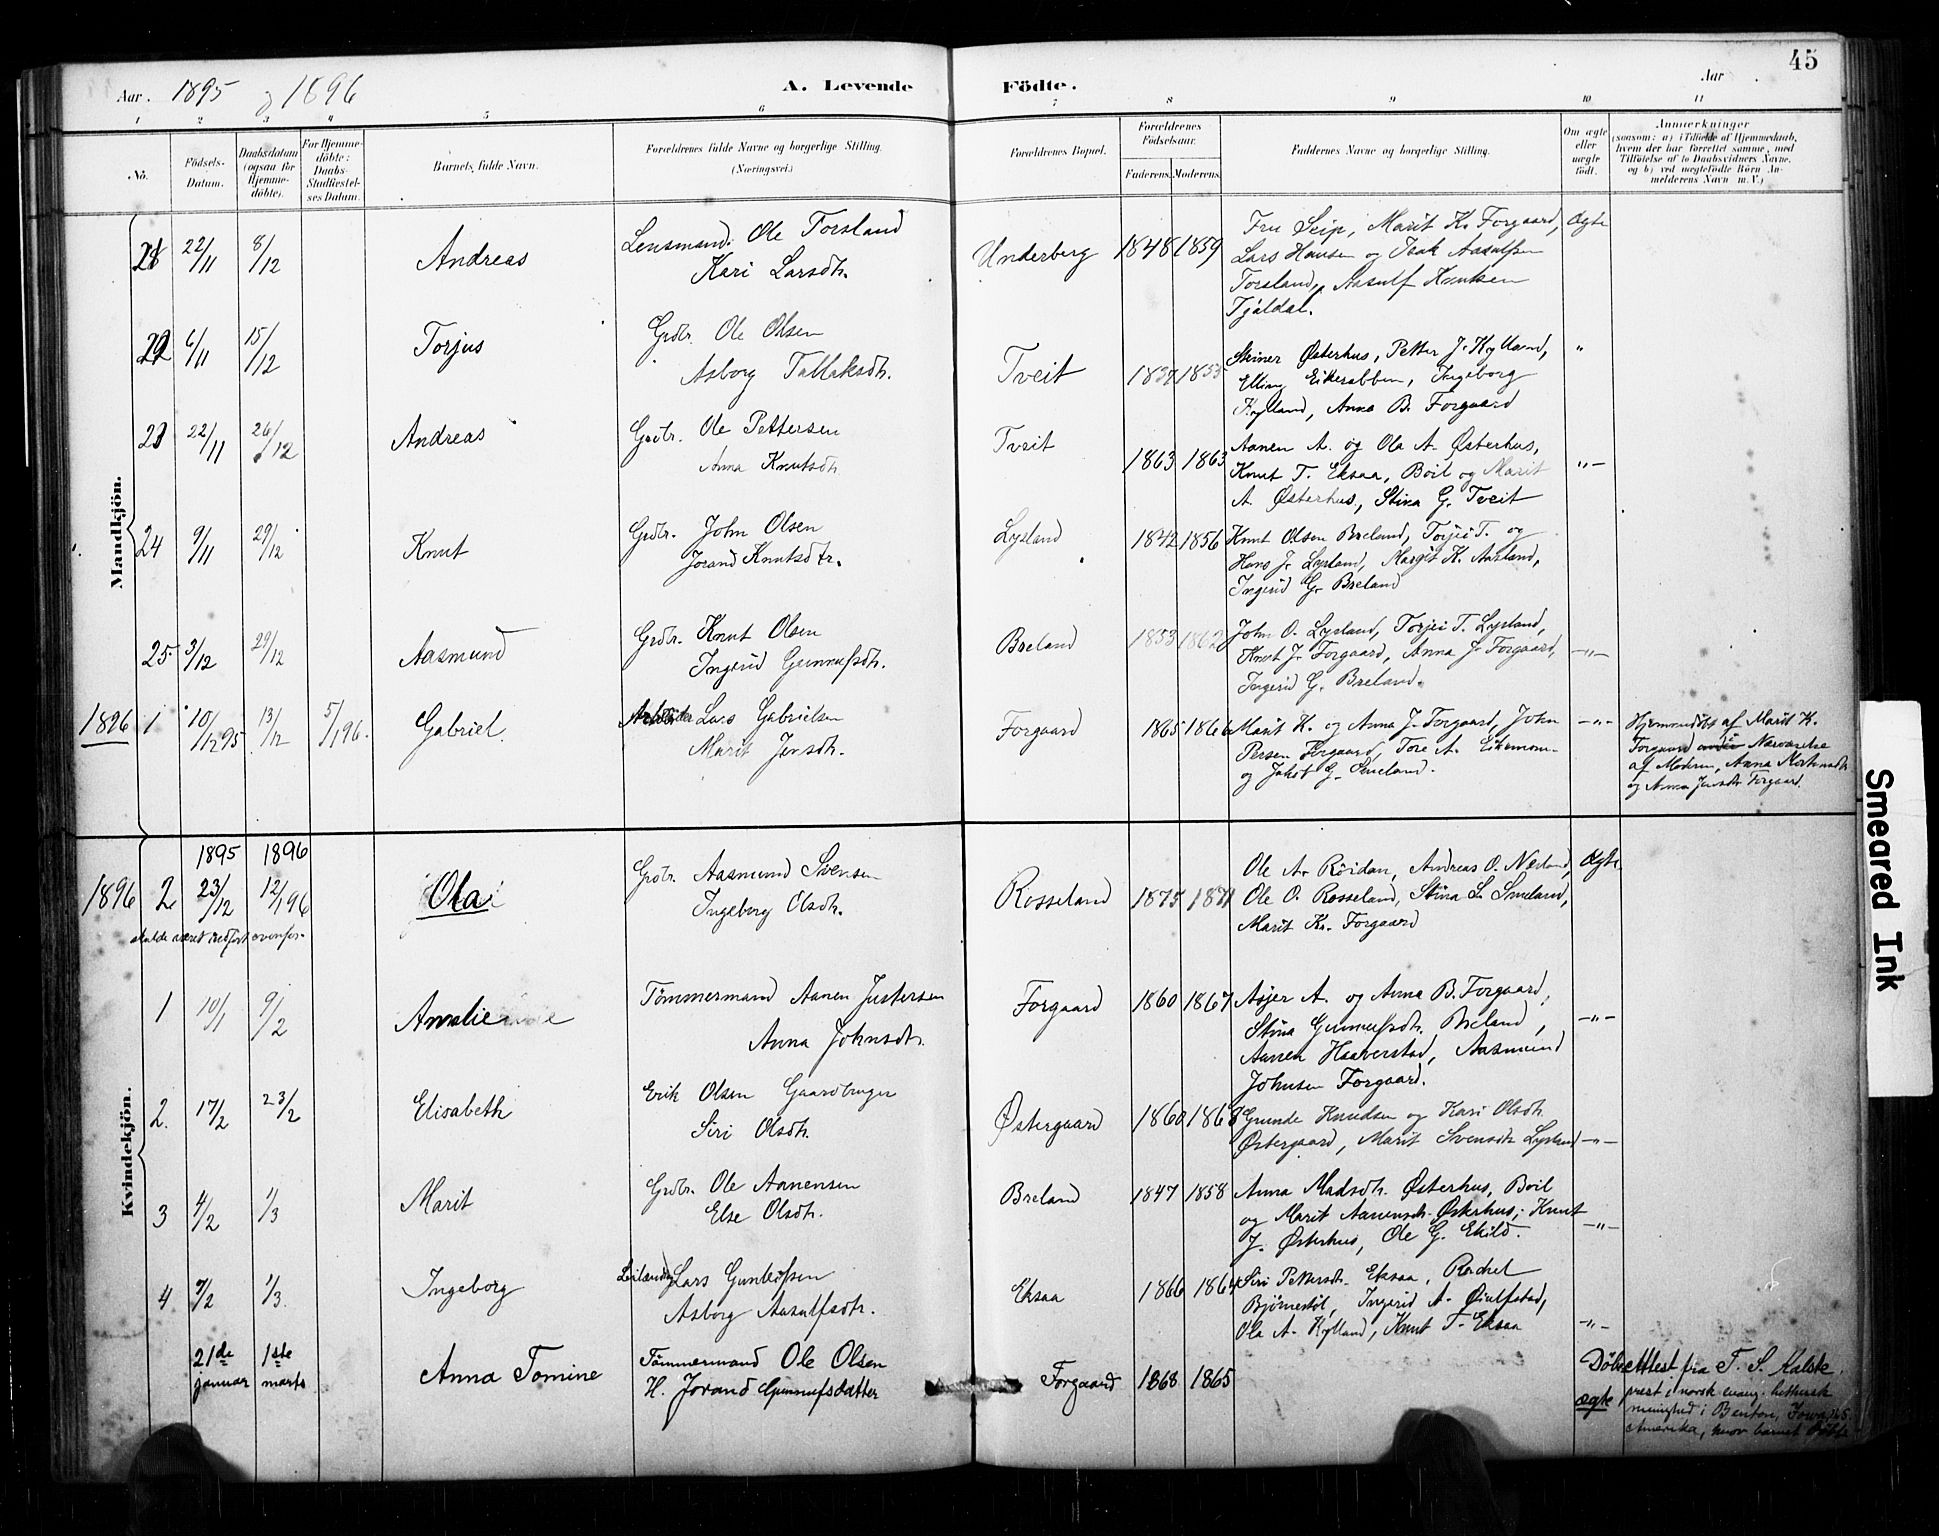 45
Aar. 1895 og 1896
A. Levende Födte.
Aar
1 2 3 4 5 6 7 8 9 10 11
No.
Födsels-Datum.
Daabsdatum (ogsaa for Hjemme-döbte).
For Hjemme-döbte: Daabs-Stadfæstel-ses Datum.
Barnets fulde Navn.
Forældrenes fulde Navne og borgerlige Stilling. (Næringsvei.)
Forældrenes Bopæl.
Forældrenes Födselsaar.
Faderens. Moderens.
Faddernes Navne og borgerlige Stilling.
Om ægte eller uægte födt.
Anmærkninger
(saasom: a) i Tilfælde af Hjemmedaab, hvem der har forrettet samme, med Tilföielse af to Daabsvidners Navne, og b) ved uægtefödte Börn An-melderens Navn m. V.)
Mandkjön.
21 22/11 8/12 Andreas
Lensmand Ole Torsland
Kari Larsdtr.
Underberg 1848 1859
Fru Seip, Marit K. Forgaard,
Lars Hansen og Isak Aasulfsen
Torsland, Aasulf Knutsen
Tjäldal.
Ægte
22 6/11 15/12 Torjus
Grdbr. Ole Olsen
Asborg Tallaksdtr.
Tveit
Steiner Østerhus, Petter J. Kylland,
Elling Eikerabben, Ingeborg
Kylland, Anna B. Forgaard
"
23 22/11 26/12 Andreas
Grdbr. Ole Pettersen
Anna Knutsdtr
Tveit 1863 1863
Aanen A. og Ola A. Østerhus,
Knut T. Eksaa, Boil og Marit
A. Østerhus, Stina G. Tveit
-"-
24 9/11 29/12 Knut
Grdbr. John Olsen
Jorand Knutsdtr.
Lysland 1842 1856
Knut Olsen Breland, Torjei T. og
Hans J. Lysland, Margit K. Aasland,
Ingerid G. Breland
25 3/12 29/12 Aasmund
Grdbr. Knut Olsen
Ingerid Gunnufsdtr.
Breland 1853 1862
John O. Lysland, Torjei T. Lysland,
Knut J. Forgaard, Anna J. Forgaard,
Ingerid G. Breland.
-"-
1896 1 10/12 95 13/12 5/1 96. Gabriel
Arbeider Lars Gabrielsen
Marit Jensdtr.
Forgaard 1865 1866
Marit K. og Anna J. Forgaard, John
Persen Forgaard, Tore A. Eikemom
og Jakob G. Smeland.
-"-
Hjemmedøbt af Marit K.
Forgaard Nærværelse
af Moderen, Anna
og Anna Jensdtr Forgaard.
1895 1896
1896 2 23/12 12/1 96 Ola
skulde været indført ovenfor.
Grdbr. Aasmund Svensen
Ingeborg Olsdtr.
Rosseland 1875 1871
Ole A. Röidan, Andreas O. Næland,
Ole O. Rosseland, Stina L. Smeland,
Marit K. Forgaard
Ægte
Kvindekjön.
1 10/1 9/2 Amalie
Tömmermand Aanen Justersen
Anna Johnsdtr.
Forgaard 1860 1867
Asjer A. og Anna B. Forgaard,
Stina Gunnufsdtr. Breland,
Aanen Haaverstad, Aasmund
Johnsen Forgaard.
-"-
2. 17/2 23/2 Elisabeth
Erik Olsen Gaardbruger
Siri Olsdtr.
Østergaard 1860 1868
Gunde Knudsen og Kari Olsdtr
Østergaard, Marit Svensdtr Lysland
-"-
3 4/2 1/3 Marit
Grdbr. Ole Aanensen
Else Olsdtr.
Breland 1847 1858
Anna Madsdtr. Østerhus, Boil
og Marit Aanensdtr. Østerhus, Knut
J. Østerhus, Ole G. Ekild.
-"-
4 7/2 1/3. Ingeborg
Leilænding Lars Gunleifsen
Asborg Aasulfsdtr.
Eksaa 1866 1864
Siri Pettersdtr. Eksaa, Rachel
Bjørnestöl, Ingerid A. Øiulfstad,
Ola A. Kylland, Knut T. Eksaa
-"-
21de januar 1ste marts Anna Tomine
Tömmermand Ole Olsen
H. Jorand Gunnufsdatter
Forgaard 1868 1865
ægte
Döbeattest fra T. S. Kalste
præst i norsk evang. luthersk
menighed i Benton, Iowa
Amerika, hvor barnet
Smeared Ink